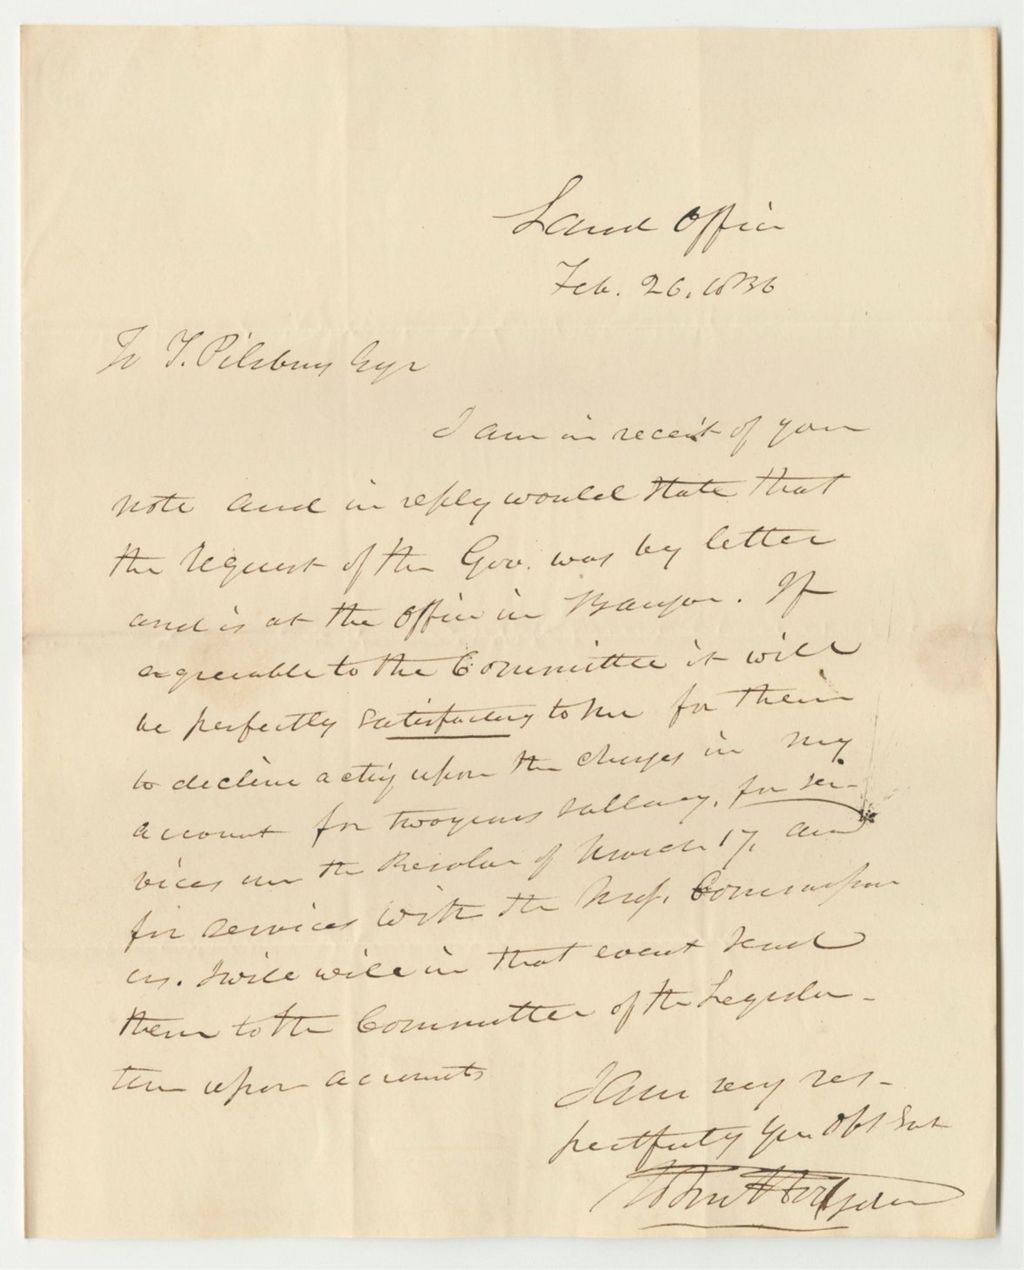 Land Office
Feb. 26, 1836
To T. Pilsbury Esqr
I am in receit of your
note and in reply would state that
the request of the Gov. was by letter
and is at the Office in Bangor. If
agreeable to the Committee it will
be perfectly satisfactory to me for them
to decline acting upon the charges in my
account for two years sallary, for ser-
vices under the Resolve of March 17, and
for services with the Mass. Commission
ers. I will will in that event send
them to the Committee of the Legisla-
ture upon accounts
I am very res-
pectfully Your Obt Svt
John Hodgdon